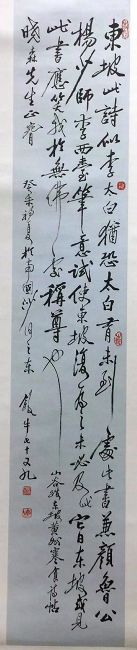 東坡此詩似李太白猶恐太白有未到處此書兼顏魯公
楊少師李西臺筆意試使東坡復為之未必及此它日東坡或見
此書應笑我於無佛處稱尊也
山谷跋東坡黃州寒食詩帖
曉森先生正
癸未初夏於南 月之東
飯牛七十又九